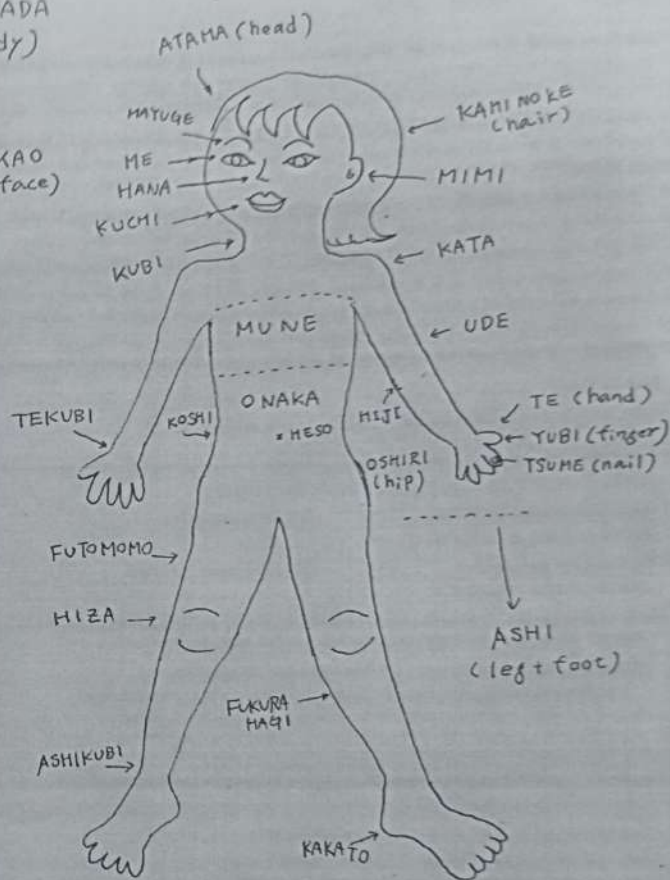 ADA
dy)
ATAMA (head)
KAMI NOKE
(hair)
MAYUGE
KAO
face)
ME
HANA
MIMI
KUCHI
KUBI
KATA
MUNE
UDE
ONAKA
TEKUBI
KOSHI
HESO
HIJI
TE (hand)
YUBI (finger)
TSUME (nail)
OSHIRI
(hip)
FUTOMOMO
HIZA
ASHI
(leg + foot)
FUKURA
HAGI
ASHIKUBI
KAKATO